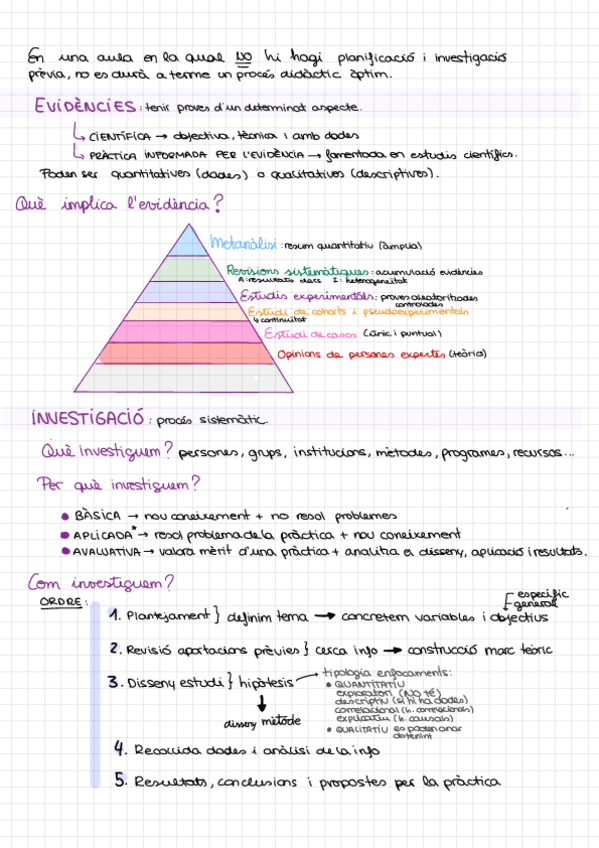 En una aula en la qual NO hi hagi planificació i investigació
prèvia, no es durà a terme un procés didàctic òptim.
EVIDÈNCIES: tenir proves d'un determinat aspecte.
CIENTÍFICA → objectiva, tècnica i amb dades
PRÀCTICA INFORMADA PER L'EVIDÈNCIA → fomentada en estudis científics.
Poden ser quantitatives (dades) o qualitatives (descriptives).
Què implica l'evidència?
Metanàlisi: resum quantitatiu (àmplia)
Revisions sistemàtiques: acumulació evidències
A: resultats clars I: heterogeneïtat
Estudis experimentals: proves aleatoritzades
controlades
Estudi de cohorts i pseudoexperimentals
↳ continuïtat
Estudi de casos (únic i puntual)
Opinions de persones expertes (teòria)
INVESTIGACIÓ: procés sistemàtic.
Què investiguem? persones, grups, institucions, mètodes, programes, recursos...
Per què investiguem?
• BÀSICA → nou coneixement + no resol problemes
• APLICADA* → resol problema de la pràctica + nou coneixement
• AVALUATIVA → valora mèrit d'una pràctica + analitza el disseny, aplicació i resultats.
Com investiguem?
ORDRE:
específic
general
1. Plantejament } definim tema → concretem variables i objectius
2. Revisió aportacions prèvies } cerca info → construcció marc teòric
3. Disseny estudi } hipòtesis → tipologia enfocaments:
• QUANTITATIU
exploratori (NO té)
descriptiu (si hi ha dades)
correlacional (h. correlacionals)
explicatiu (h. causals)
• QUALITATIU es poden anar
obtenint
disseny mètode
4. Recollida dades i anàlisi de la info
5. Resultats, conclusions i propostes per la pràctica